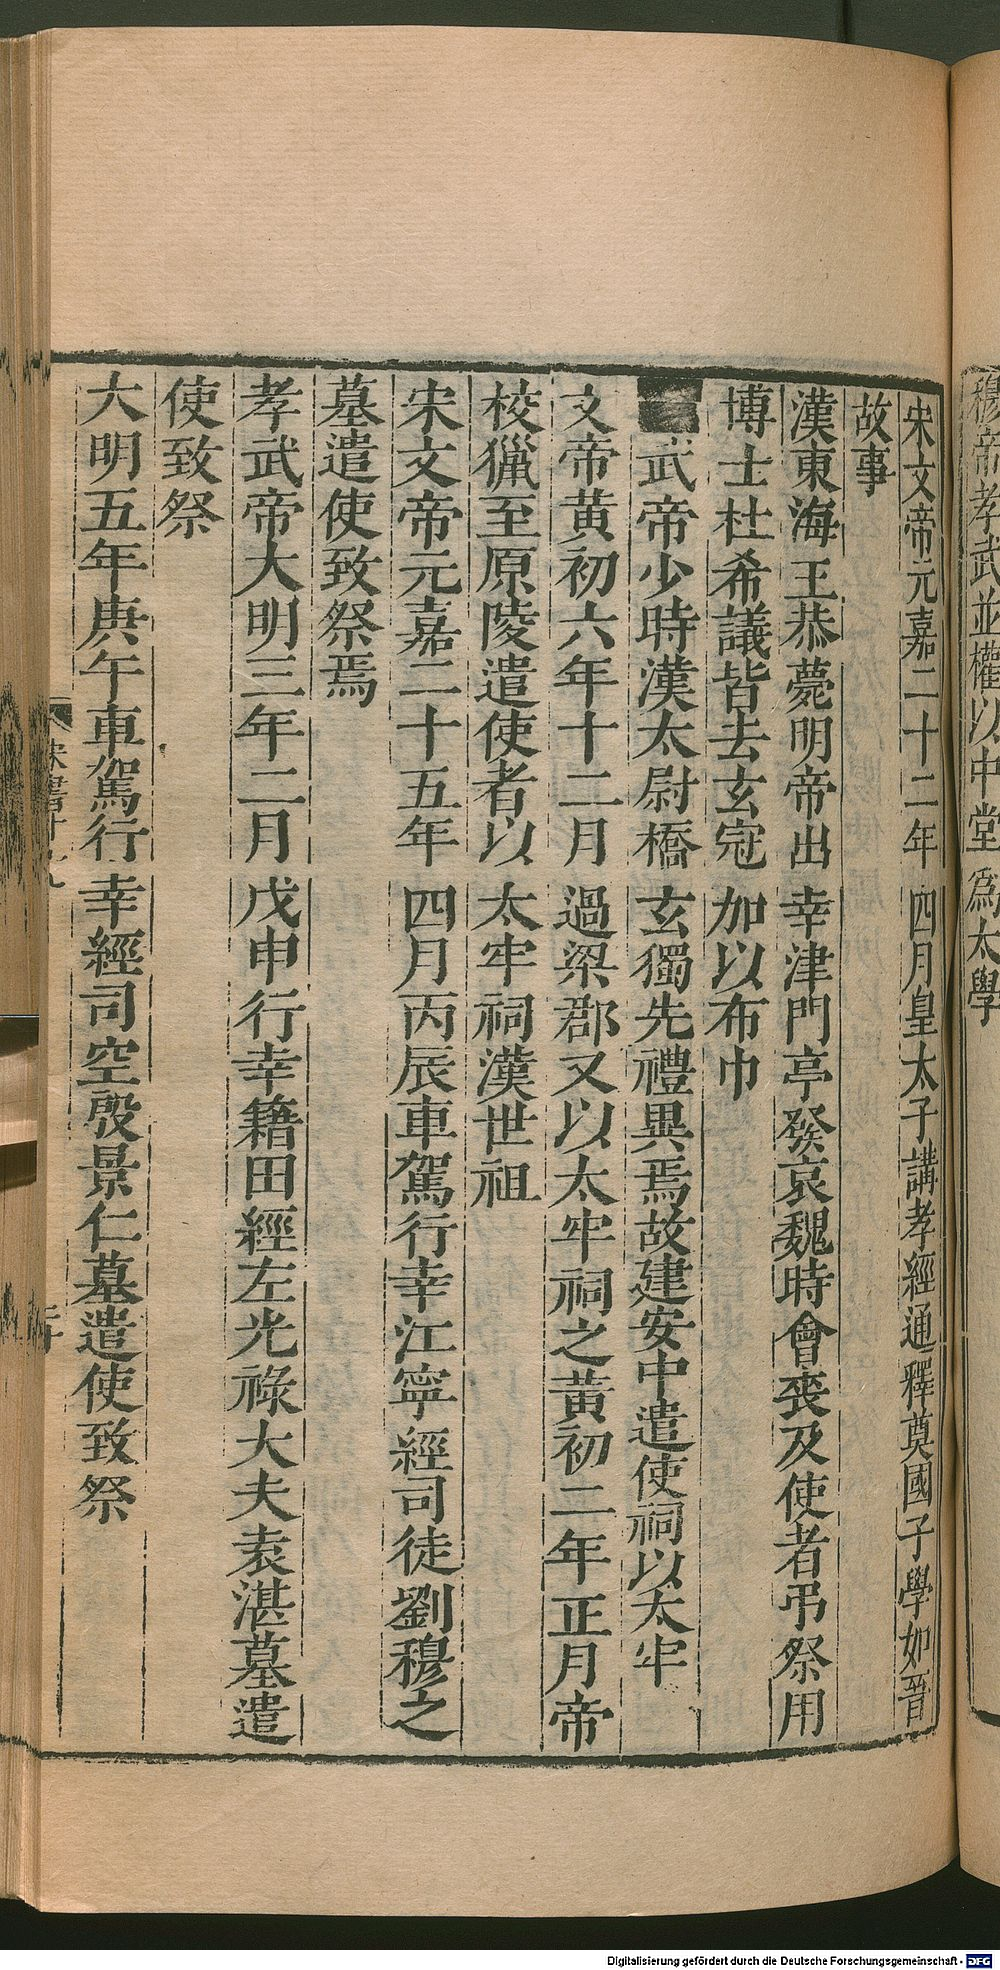 穆帝孝武並權以中堂爲太學
宋文帝元嘉二十二年四月皇太子講孝經通釋奠國子學如晉
故事
漢東海王恭薨明帝出幸津門亭發哀魏時會喪及使者弔祭用
博士杜希議皆去玄冠加以布巾
武帝少時漢太尉橋玄獨先禮異焉故建安中遣使祠以太牢
文帝黃初六年十二月過梁郡又以太牢祠之黃初二年正月帝
校獵至原陵遣使者以太牢祠漢世祖
宋文帝元嘉二十五年四月丙辰車駕行幸江寧經司徒劉穆之
墓遣使致祭焉
孝武帝大明三年二月戊申行幸籍田經左光祿大夫袁湛墓遣
使致祭
大明五年庚午車駕行幸經司空殷景仁墓遣使致祭
Digitalisierung gefördert durch die Deutsche Forschungsgemeinschaft - DFG